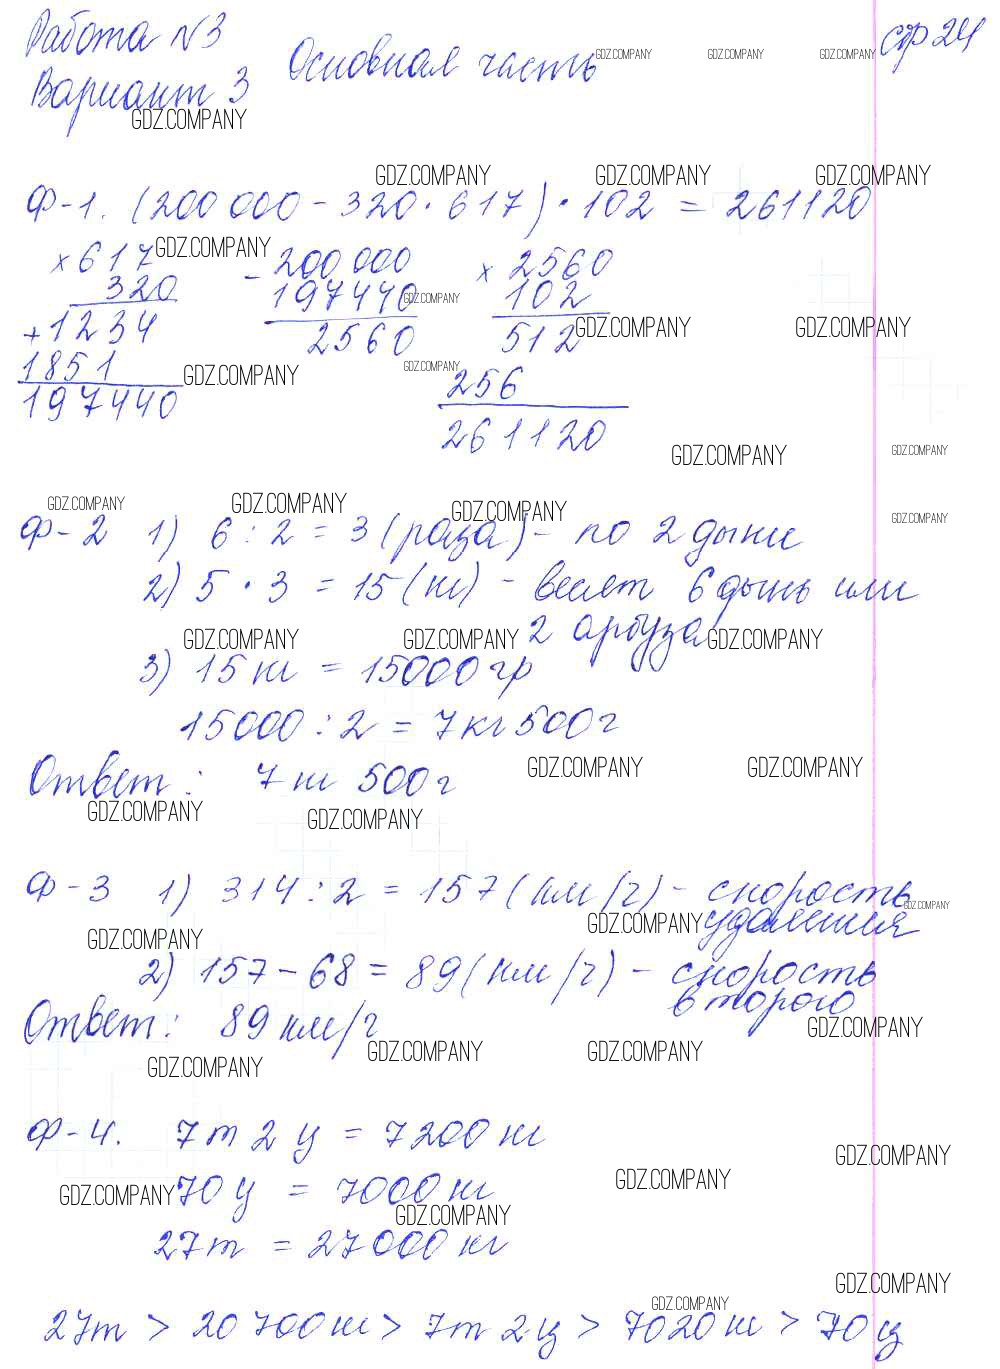 Работа №3
Основная часть
стр 24
Вариант 3
Ф-1. (200 000 - 320 · 617) · 102 = 261120
× 617
320
+ 1234
1851
197440
- 200 000
197440
2560
× 2560
102
512
256
261120
Ф-2 1) 6 : 2 = 3 (раза) - по 2 дыни
2) 5 · 3 = 15 (кг) - весят 6 дынь или
2 арбуза
3) 15 кг = 15000 гр
15000 : 2 = 7 кг 500 г
Ответ: 7 кг 500 г
Ф-3 1) 314 : 2 = 157 (км/ч) - скорость
удаления
2) 157 - 68 = 89 (км/ч) - скорость
второго
Ответ: 89 км/ч
Ф-4. 7 т 2 ц = 7200 кг
70 ц = 7000 кг
27 т = 27000 кг
27 т > 20 700 кг > 7 т 2 ц > 7020 кг > 70 ц
GDZ.COMPANY